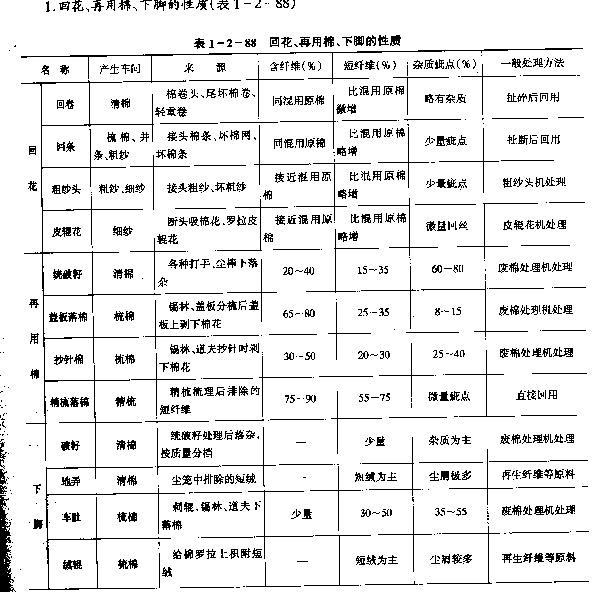 1.回花、再用棉、下脚的性质(表1-2-88)
表1-2-88 回花、再用棉、下脚的性质
名 称 产生车间 来 源 含纤维(%) 短纤维(%) 杂质疵点(%) 一般处理方法
回花
回卷 清棉 棉卷头、尾坏棉卷、轻重卷 同混用原棉 比混用原棉微增 略有杂质 扯碎后回用
回条 梳棉、并条、粗纱 接头棉条、坏棉网、坏棉条 同混用原棉 比混用原棉略增 少量疵点 扯断后回用
粗纱头 粗纱、细纱 接头粗纱、坏粗纱 接近混用原棉 比混用原棉略增 少量疵点 粗纱头机处理
皮辊花 细纱 断头吸棉花、罗拉皮辊花 接近混用原棉 比混用原棉略增 微量回丝 皮辊花机处理
再用棉
统破籽 清棉 各种打手、尘棒下落杂 20~40 15~35 60~80 废棉处理机处理
盖板落棉 梳棉 锡林、盖板分梳后盖板上剥下棉花 65~80 25~35 8~15 废棉处理机处理
抄针棉 梳棉 锡林、道夫抄针时剥下棉花 30~50 20~30 25~40 废棉处理机处理
精梳落棉 精梳 精梳梳理后排除的短纤维 75~90 55~75 微量疵点 直接回用
下脚
破籽 清棉 统破籽处理后落杂,按质量分档 — 少量 杂质为主 废棉处理机处理
地弄 清棉 尘笼中排除的短绒 — 短绒为主 尘屑极多 再生纤维等原料
车肚 梳棉 刺辊、锡林、道夫下落棉 少量 30~50 35~55 废棉处理机处理
绒辊 梳棉 给棉罗拉上积附短绒 — 短绒为主 尘屑较多 再生纤维等原料